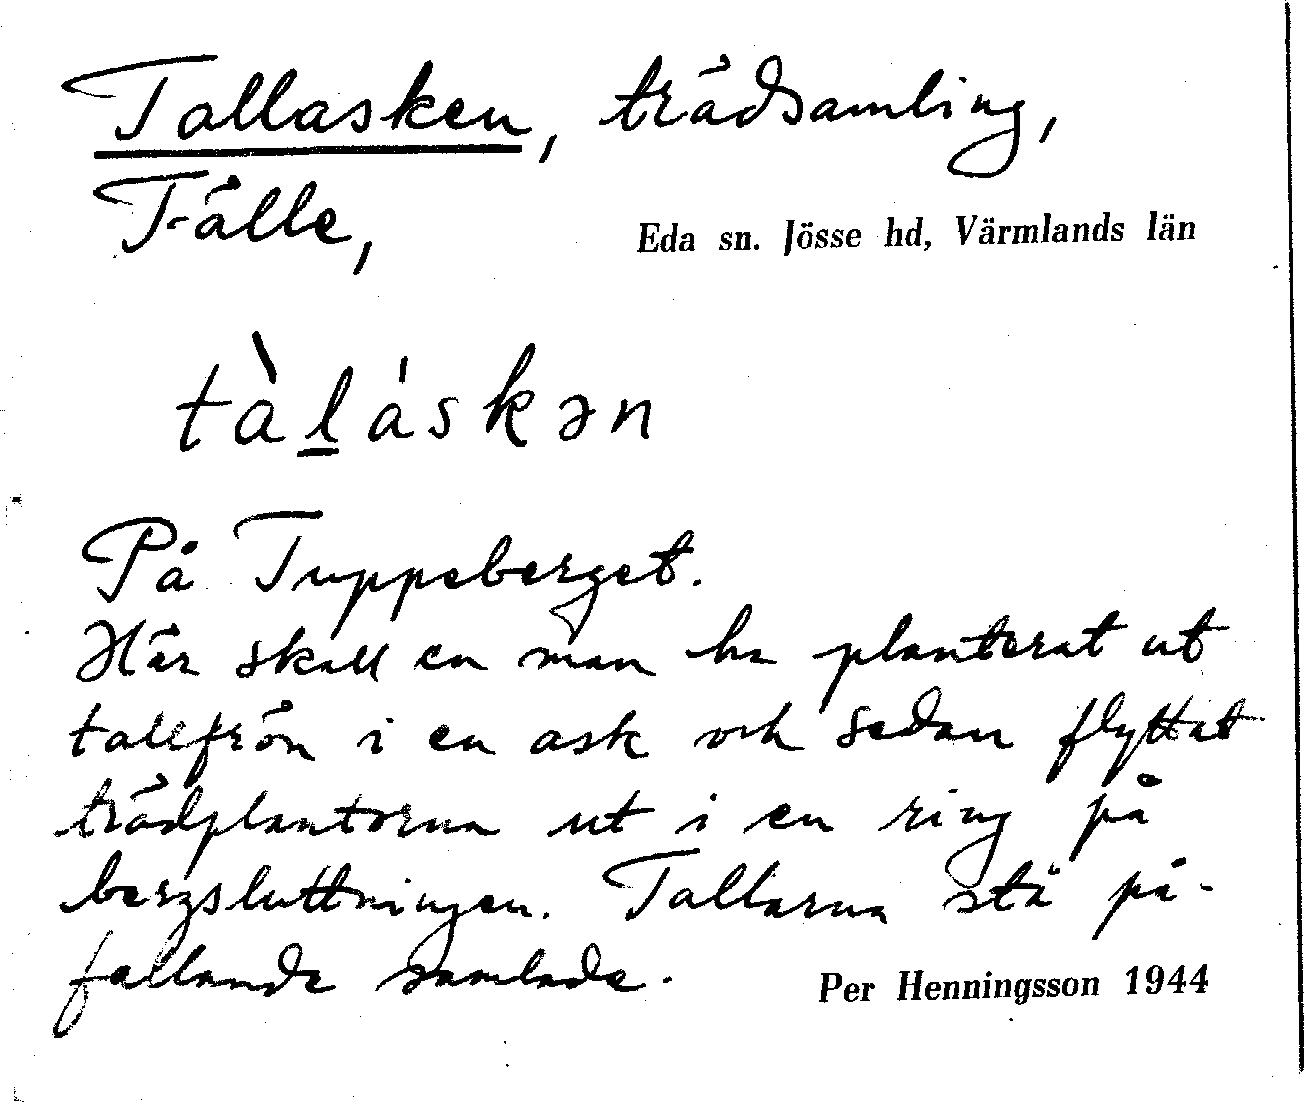 Tallasken, trädsamling,
Fälle, Eda sn. Jösse hd, Värmlands län
tàḻáskən
På Tuppeberget.
Här skall en man ha planterat ut
tallfrön i en ask och sedan flyttat
trädplantorna ut i en ring på
bergsluttningen. Tallarna stå på-
fallande samlade.
Per Henningsson 1944